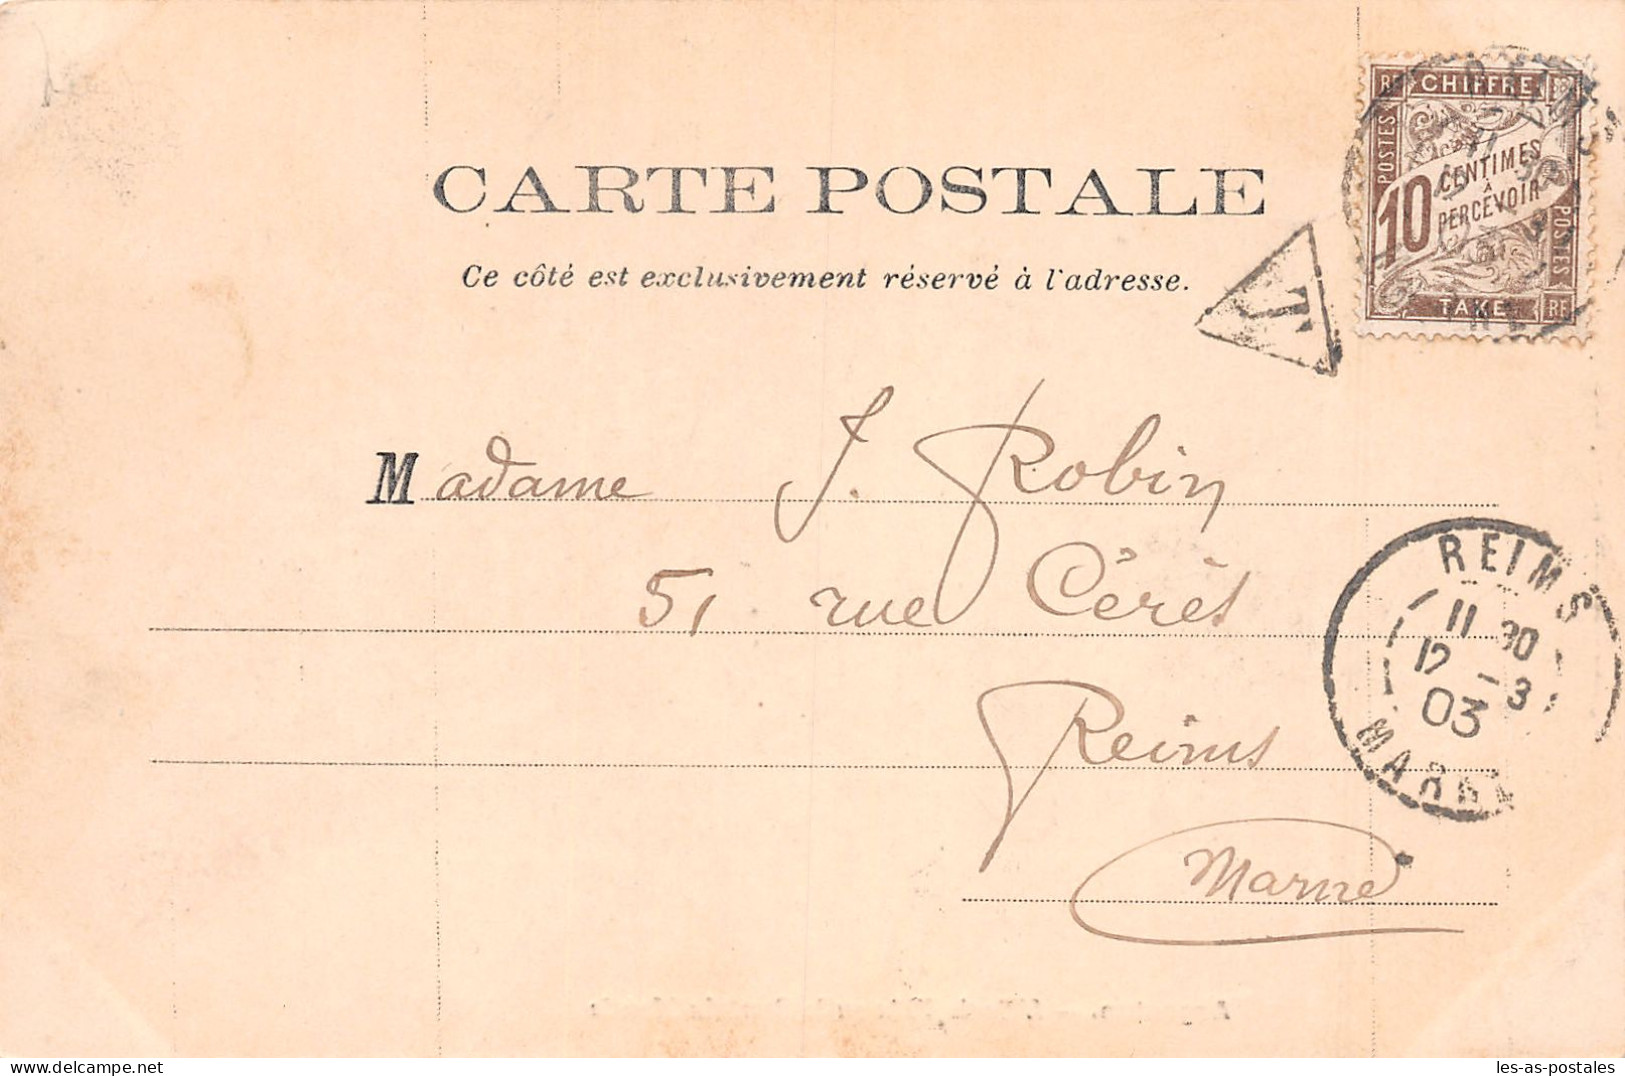 CARTE POSTALE
Ce côté est exclusivement réservé à l'adresse.
RF CHIFFRE
POSTES
10 CENTIMES
A
PERCEVOIR
POSTES
TAXE RF
T
Madame J. Robin
51 rue Cérès
Reims
Marne
REIMS
11 30
12 - 3
03
MARNE
les-as-postales